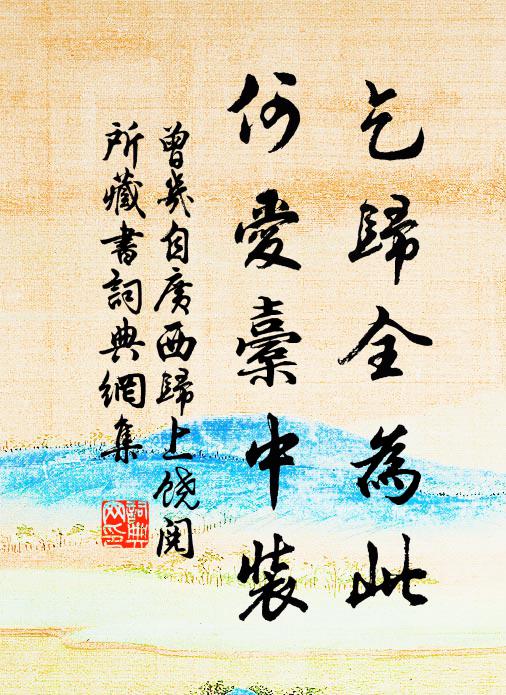 乞歸全為此
何愛橐中裝
曾幾自廣西歸上饒閱
所藏書詞典網集
詞典
网印